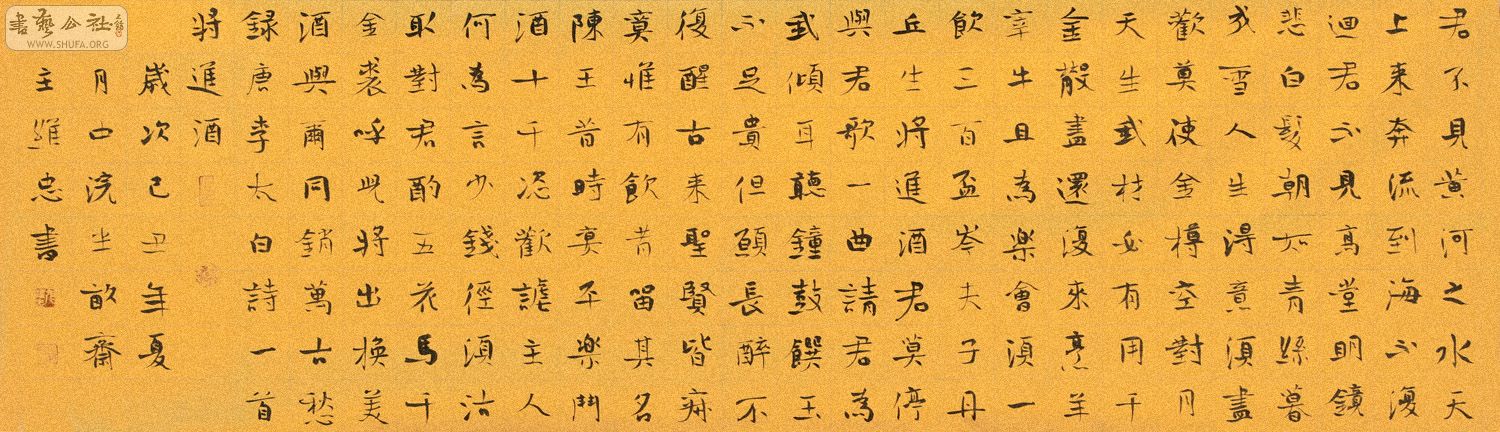 君不見黃河之水天
上来奔流到海不復
迴君不見高堂明鏡
悲白髮朝如青絲暮
成雪人生得意須盡
歡莫使金樽空對月
天生我材必有用千
金散盡還復來烹羊
宰牛且為樂會須一
飲三百盃岑夫子丹
丘生將進酒君莫停
與君歌一曲請君為
我傾耳聽鐘鼓饌玉
不足貴但願長醉不
復醒古来聖賢皆寂
寞惟有飲者留其名
陳王昔時宴平樂鬥
酒十千恣歡謔主人
何為言少錢徑須沽
取對君酌五花馬千
金裘呼此將出換美
酒與爾同銷萬古愁
録唐李太白詩一首
將進酒
歲次己丑年夏
月中浣半畝齋
主維忠書
書藝公社
WWW.SHUFA.ORG